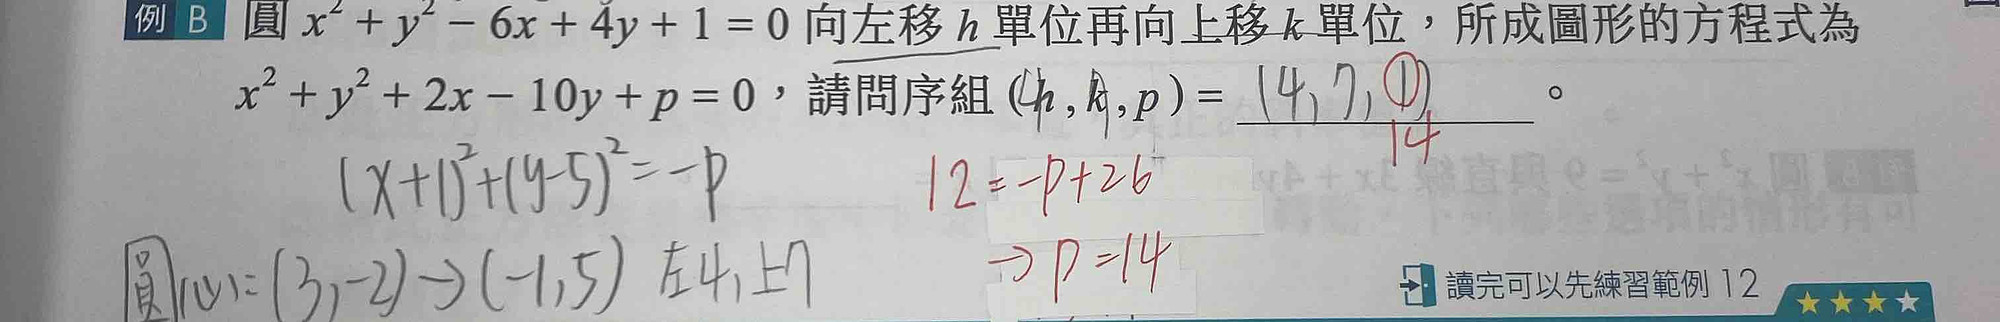 例 B 圓 x² + y² − 6x + 4y + 1 = 0 向左移 h 單位再向上移 k 單位，所成圖形的方程式為
x² + y² + 2x − 10y + p = 0，請問序組 (h, k, p) = (4, 7, 1) 。
14
(x+1)²+(y-5)²=-p
12=-p+26
圓心:(3,-2)→(-1,5) 左4,上7
→p=14
讀完可以先練習範例 12